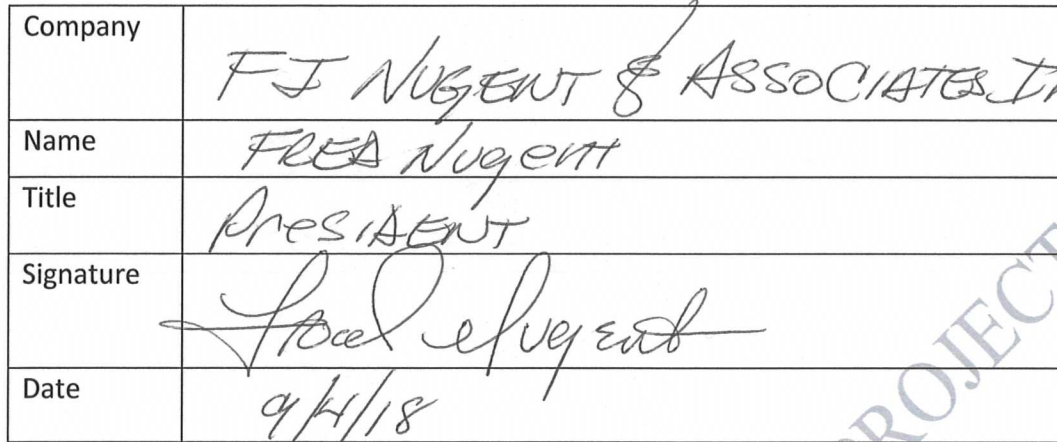 Company FJ NUGENT & ASSOCIATES IN
Name FRED Nugent
Title PresIDENT
Signature Fred Nugent
Date 9/4/18
PROJECT